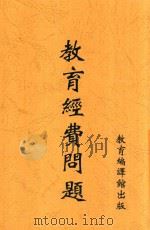 教育經費問題
教育編譯館出版
www.shukui.net